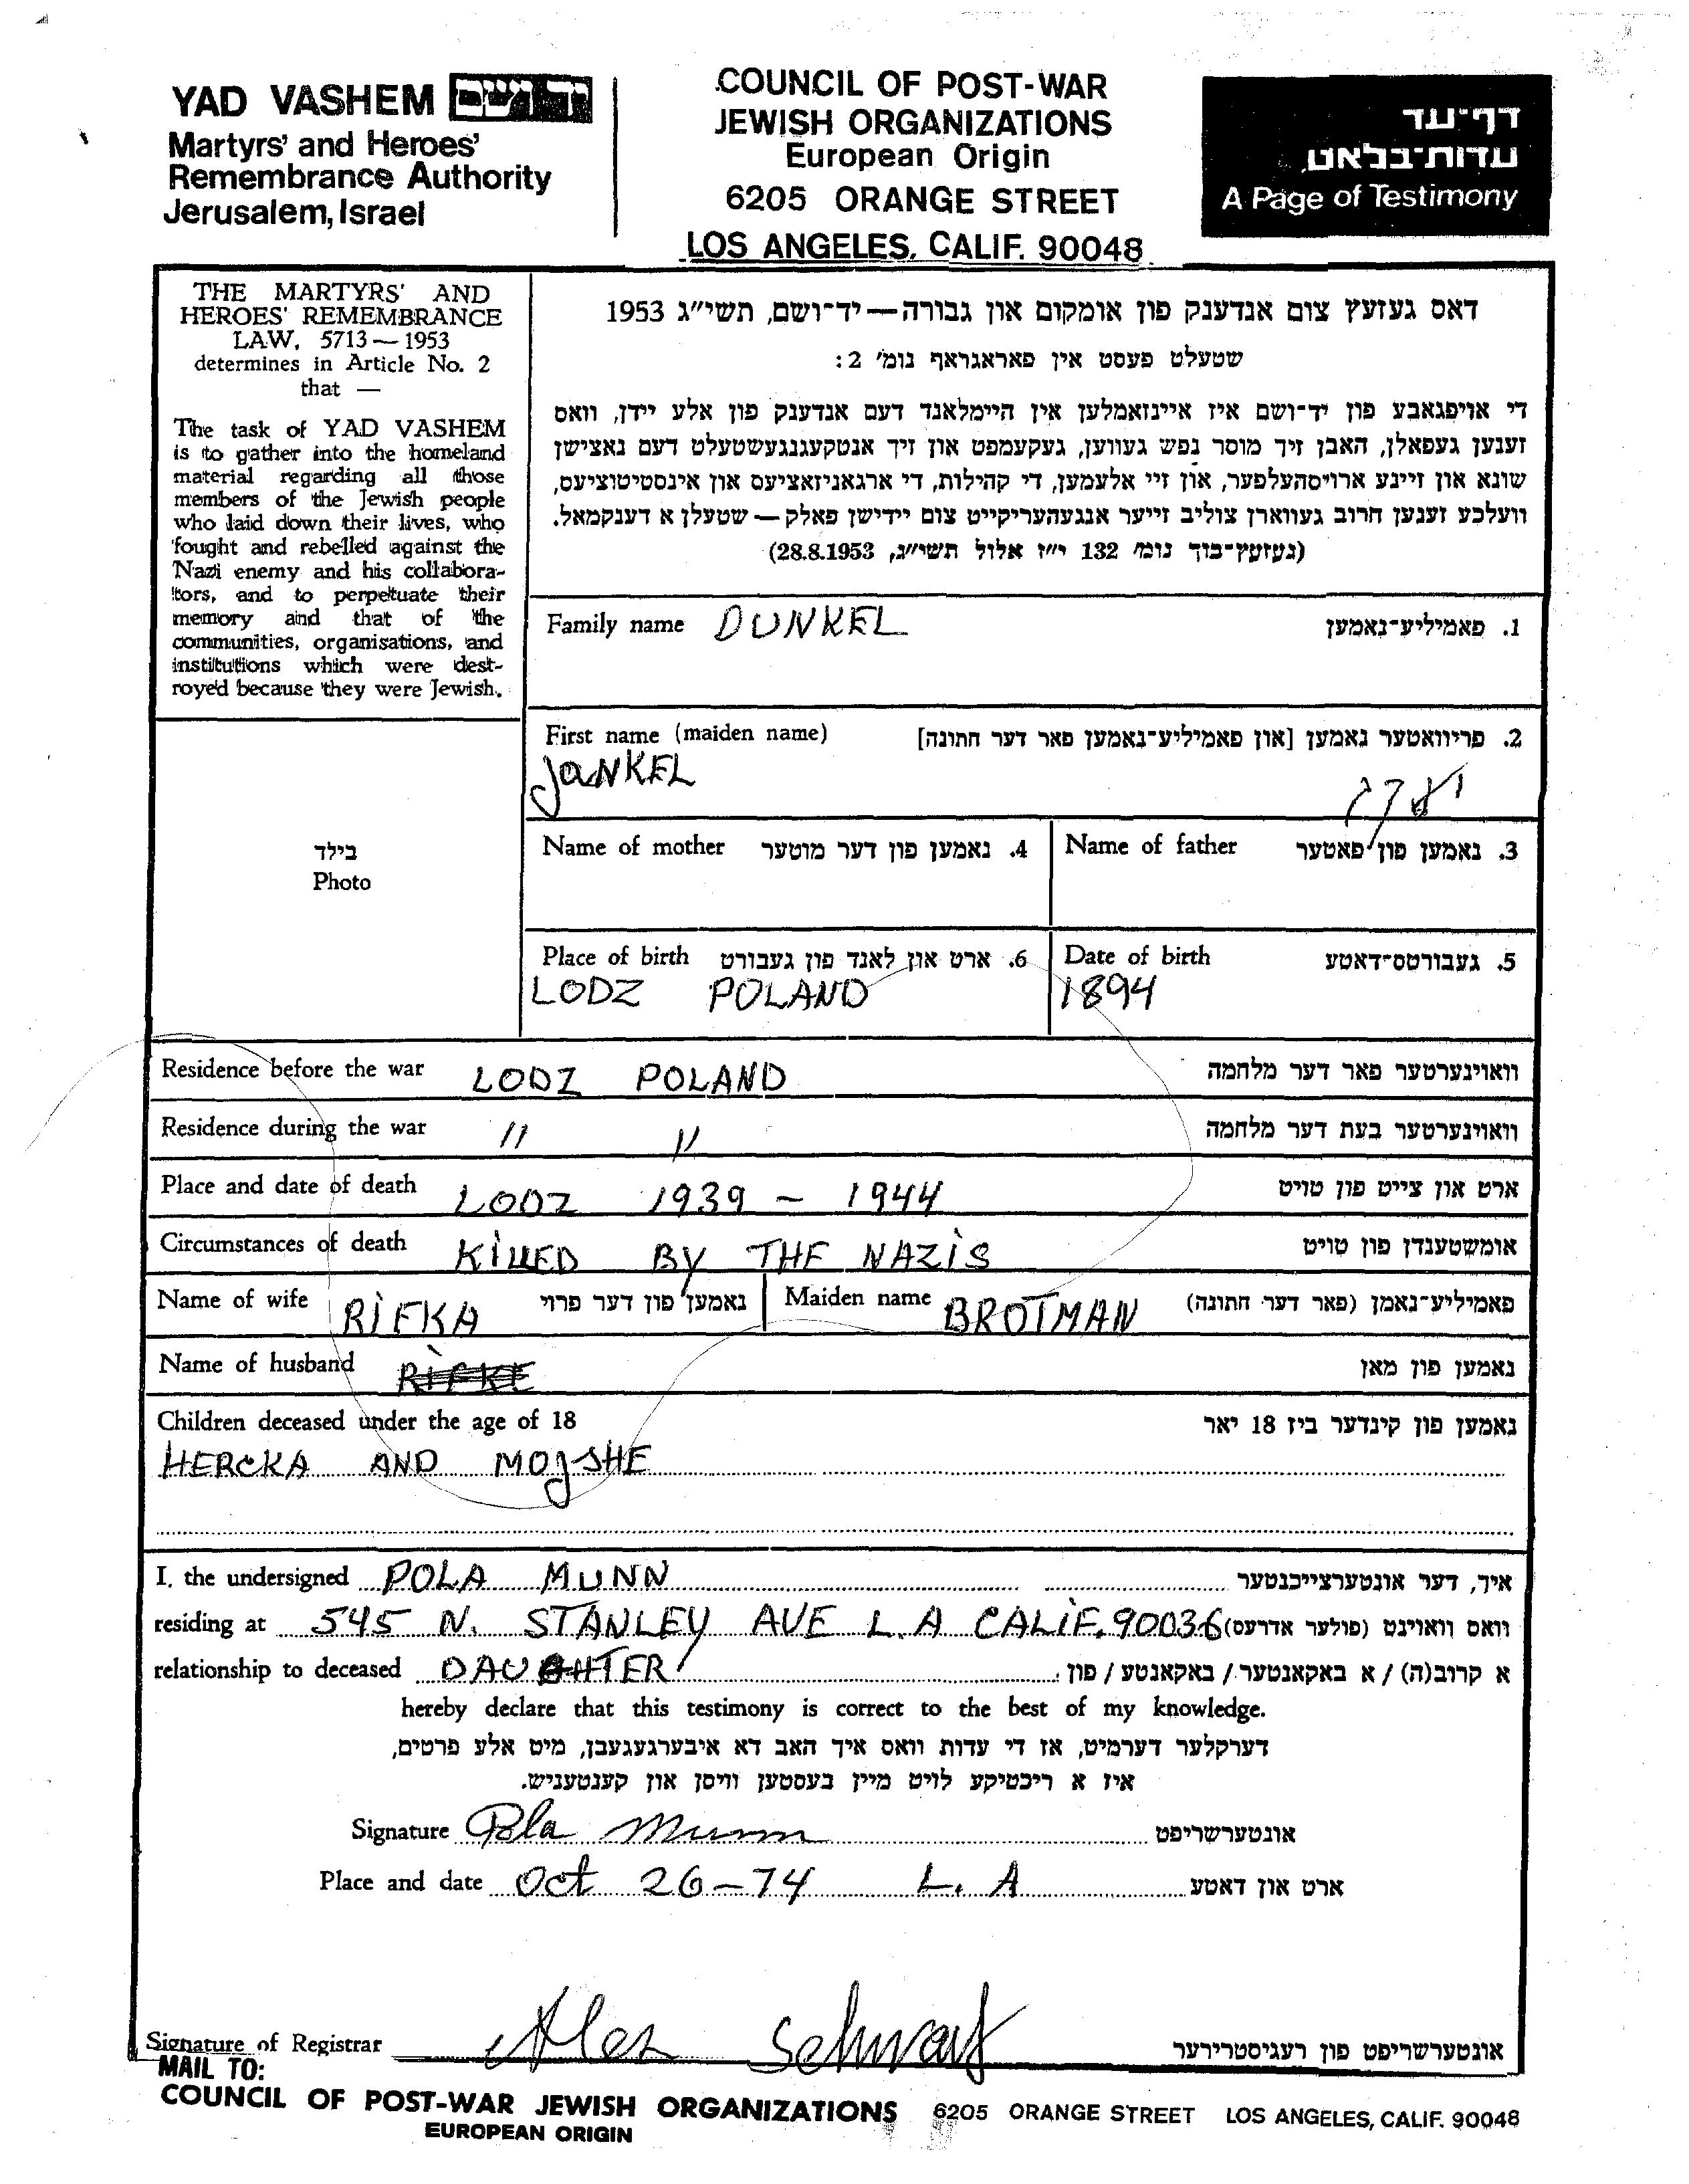 YAD VASHEM יד ושם
Martyrs' and Heroes'
Remembrance Authority
Jerusalem, Israel
COUNCIL OF POST-WAR
JEWISH ORGANIZATIONS
European Origin
6205 ORANGE STREET
LOS ANGELES, CALIF. 90048
דף-עד
עדות-בלאט
A Page of Testimony
THE MARTYRS' AND
HEROES' REMEMBRANCE
LAW, 5713—1953
determines in Article No. 2
that —
The task of YAD VASHEM
is to gather into the homeland
material regarding all those
members of the Jewish people
who laid down their lives, who
fought and rebelled against the
Nazi enemy and his collabora-
tors, and to perpetuate their
memory and that of the
communities, organisations, and
institutions which were dest-
royed because they were Jewish.
דאס געזעץ צום אנדענק פון אומקום און גבורה—יד-ושם, תשי"ג 1953
שטעלט פעסט אין פאראגראף נומ' 2:
די אויפגאבע פון יד-ושם איז איינזאמלען אין היימלאנד דעם אנדענק פון אלע יידן, וואס
זענען געפאלן, האבן זיך מוסר נפש געווען, געקעמפט און זיך אנטקעגנגעשטעלט דעם נאצישן
שונא און זיינע ארויסהעלפער, און זיי אלעמען, די קהילות, די ארגאניזאציעס און אינסטיטוציעס,
וועלכע זענען חרוב געווארן צוליב זייער אנגעהעריקייט צום יידישן פאלק — שטעלן א דענקמאל.
(געזעץ-בוך נומ' 132 י"ז אלול תשי"ג, 28.8.1953)
Family name DUNKEL 1. פאמיליע-נאמען
First name (maiden name) 2. פריוואטער נאמען [און פאמיליע-נאמען פאר דער חתונה]
JANKEL
Name of mother 4. נאמען פון דער מוטער Name of father 3. נאמען פון פאטער
בילד
Photo
Place of birth 6. ארט און לאנד פון געבורט Date of birth 5. געבורטס-דאטע
LODZ POLAND 1894
Residence before the war LODZ POLAND וואוינערטער פאר דער מלחמה
Residence during the war " " וואוינערטער בעת דער מלחמה
Place and date of death LODZ 1939 - 1944 ארט און צייט פון טויט
Circumstances of death KILLED BY THE NAZIS אומשטענדן פון טויט
Name of wife RIFKA נאמען פון דער פרוי Maiden name BROTMAN פאמיליע-נאמן (פאר דער חתונה)
Name of husband RIFKE נאמען פון מאן
Children deceased under the age of 18 נאמען פון קינדער ביז 18 יאר
HERCKA AND MOJSHE
I, the undersigned POLA MUNN איך, דער אונטערצייכנטער
residing at 545 N. STANLEY AVE L.A CALIF. 90036 וואס וואוינט (פולער אדרעס)
relationship to deceased DAUGHTER א קרוב(ה) / א באקאנטער / באקאנטע / פון
hereby declare that this testimony is correct to the best of my knowledge.
דערקלער דערמיט, אז די עדות וואס איך האב דא איבערגעגעבן, מיט אלע פרטים,
איז א ריכטיקע לויט מיין בעסטען וויסן און קענטעניש.
Signature Pola Munn אונטערשריפט
Place and date Oct 26-74 L.A ארט און דאטע
Signature of Registrar אונטערשריפט פון רעגיסטרירער
MAIL TO:
COUNCIL OF POST-WAR JEWISH ORGANIZATIONS 6205 ORANGE STREET LOS ANGELES, CALIF. 90048
EUROPEAN ORIGIN